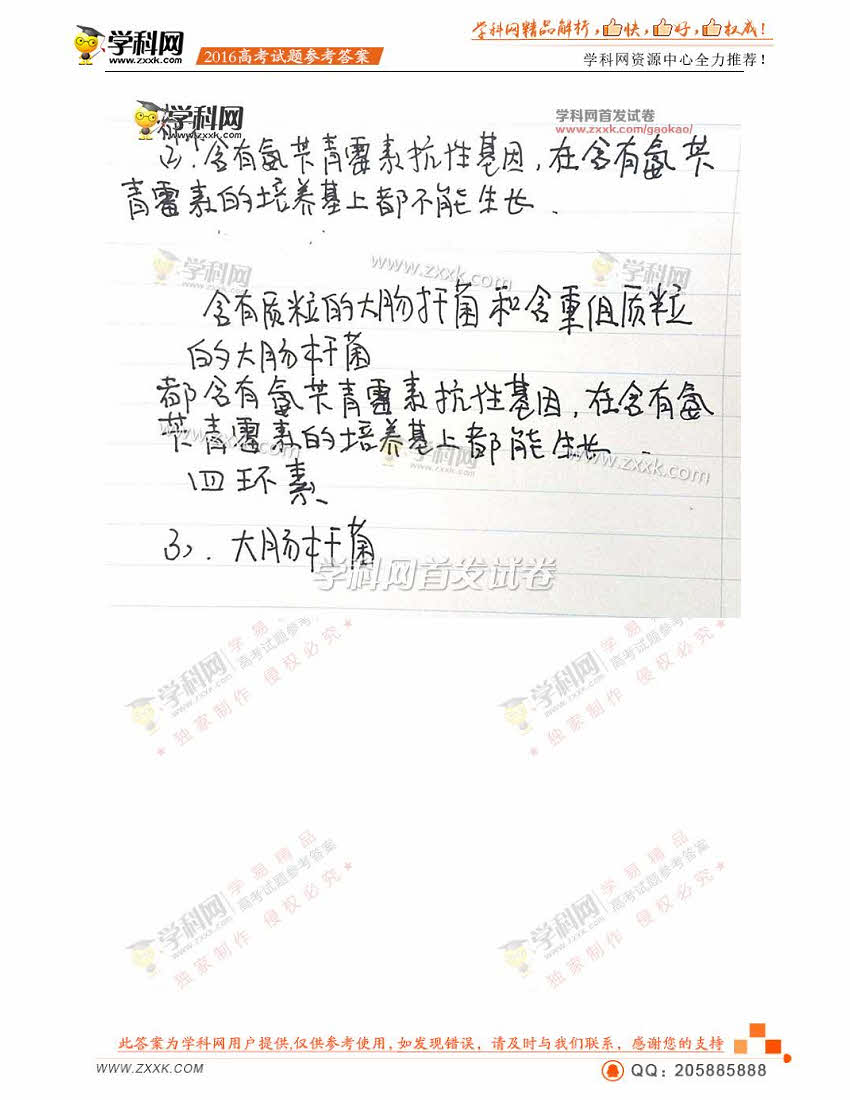 学科网精品解析，快，好，权威！
学科网
www.zxxk.com
2016高考试题参考答案
学科网资源中心全力推荐！
学科网
www.zxxk.com
学科网首发试卷
www.zxxk.com/gaokao/
都
2). 含有氨苄青霉素抗性基因，在含有氨苄
青霉素的培养基上都不能生长.
学科网
www.zxxk.com
www.zxxk.com
学科网
www.zxxk.com
含有质粒的大肠杆菌和含重组质粒
的大肠杆菌
都含有氨苄青霉素抗性基因，在含有氨
苄青霉素的培养基上都能生长.
www.zxxk.com
学科网
www.zxxk.com
www.zxxk.com
四环素
3). 大肠杆菌
学科网首发试卷
学易
高考试题参考
学科网
www.zxxk.com
★独家制作 侵权必究★
学易
高考试题参考
学科网
www.zxxk.com
★独家制作 侵权必究★
学易精品
高考试题参考答案
学科网
www.zxxk.com
★独家制作 侵权必究★
学易精品
高考试题参考答案
学科网
www.zxxk.com
★独家制作 侵权必究★
此答案为学科网用户提供,仅供参考使用，如发现错误，请及时与我们联系，感谢您的支持
WWW.ZXXK.COM
QQ：205885888